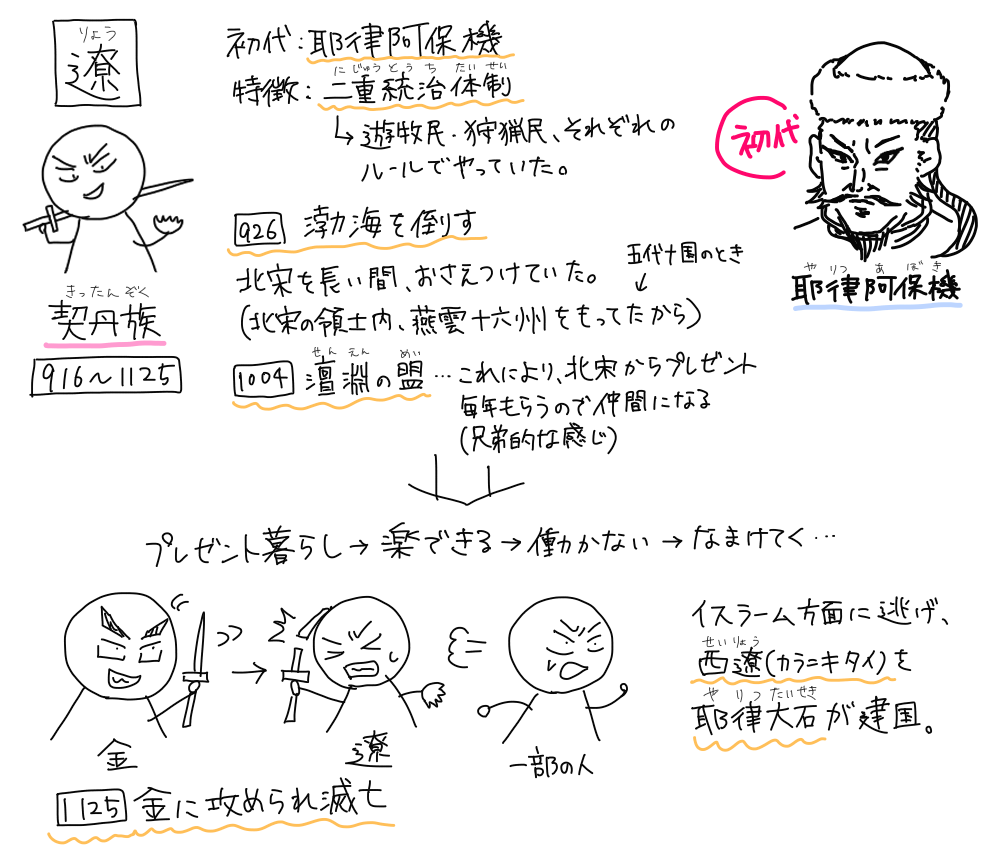 りょう
遼
初代:耶律阿保機
にじゅうとうちたいせい
特徴:二重統治体制
↳遊牧民・狩猟民、それぞれの
ルールでやっていた。
初代
やりつあぼき
耶律阿保機
きったんぞく
契丹族
916〜1125
926 渤海を倒す
北宋を長い間、おさえつけていた。
五代十国のとき
↓
(北宋の領土内、燕雲十六州をもってたから)
せんえんめい
1004 澶淵の盟…これにより、北宋からプレゼント
毎年もらうので仲間になる
(兄弟的な感じ)
プレゼント暮らし→楽できる→働かない→なまけてく…
金
→
遼
一部の人
イスラーム方面に逃げ、
せいりょう
西遼(カラ=キタイ)を
やりつたいせき
耶律大石が建国。
1125 金に攻められ滅亡